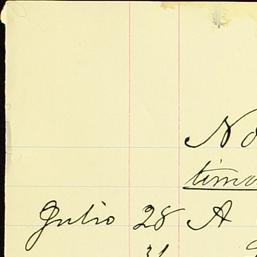 No
timo
Julio 28 A
31